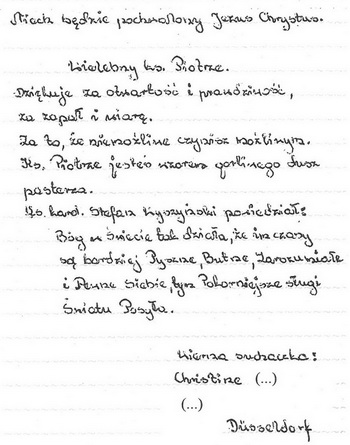 Niech będzie pochwalony Jezus Chrystus.
Wielebny ks. Piotrze.
Dziękuje za otwartość i prawdziwość,
za zapał i wiarę.
Za to, że niemożliwe czynisz możliwym.
Ks. Piotrze jesteś wzorem gorliwego dusz
pasterza.
Ks. kard. Stefan Wyszyński powiedział:
Bóg w świecie tak działa, że im czasy
są bardziej Pyszne, Butne, Zarozumiałe
i Pewne Siebie, tym Pokorniejsze sługi
Światu Posyła.
Wierna słuchaczka:
Christine (...)
(...)
Düsseldorf